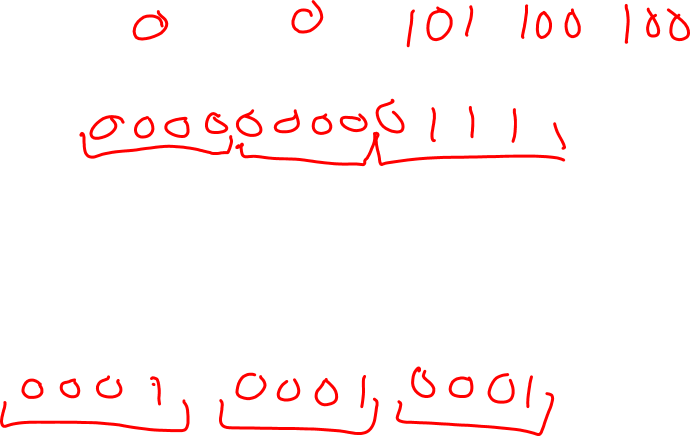 0 0 101 100 100
0000000001111
0001 0001 0001